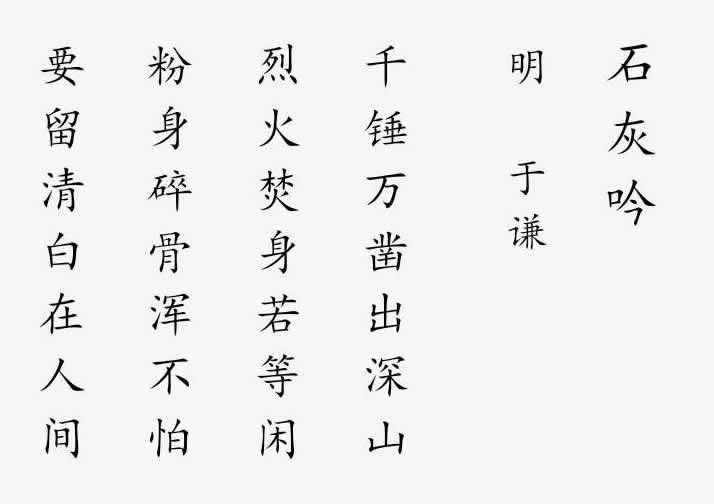 石灰吟
明 于谦
千锤万凿出深山
烈火焚身若等闲
粉身碎骨浑不怕
要留清白在人间